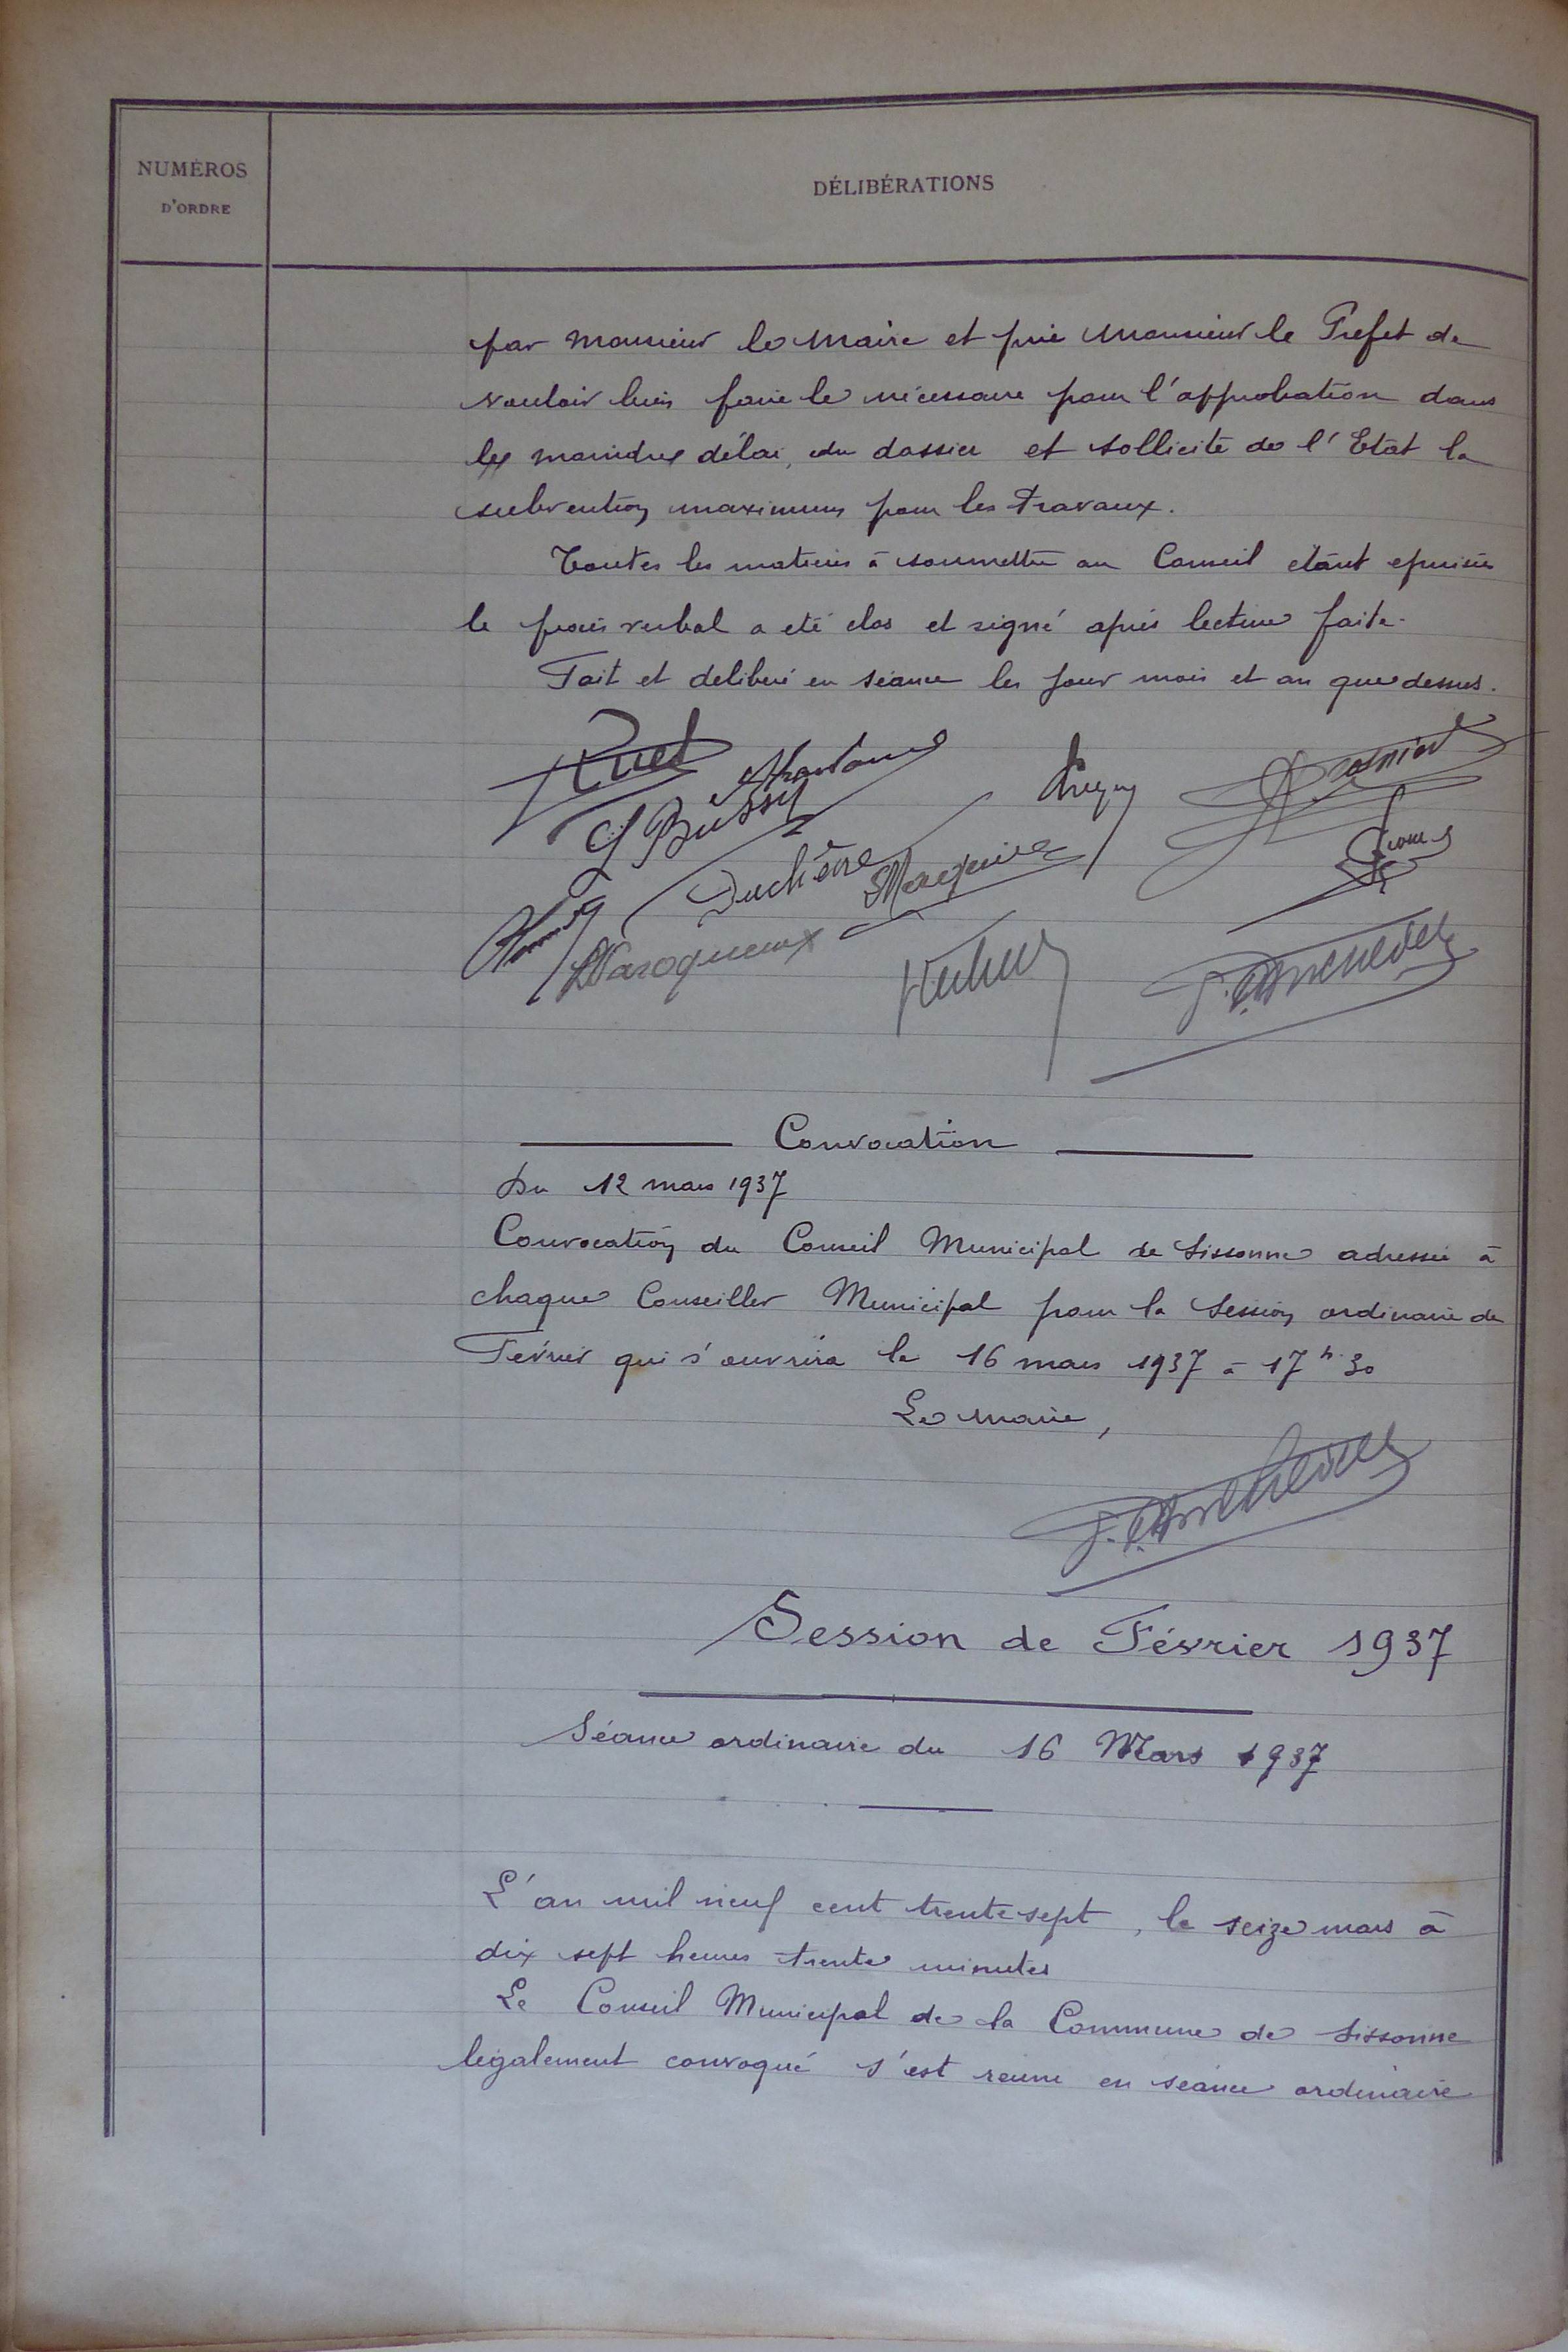 NUMÉROS
D'ORDRE
DÉLIBÉRATIONS
par Monsieur le Maire et prie Monsieur le Préfet de
vouloir bien faire le nécessaire pour l'approbation dans
les moindres délai, du dossier et sollicite de l'Etat la
subvention maximum pour les travaux.
Toutes les matières à soumettre au Conseil étant epuisées
le procès verbal a eté clos et signé après lecture faite.
Fait et deliberé en séance les jour mois et an que dessus.
Ruet
G Bussy
Duchêne
Convocation
Du 12 mars 1937
Convocation du Conseil Municipal de Sissonne adressée à
chaque Conseiller Municipal pour la Session ordinaire de
Février qui s'ouvrira le 16 mars 1937 à 17 h 30
Le Maire,
Session de Février 1937
Séance ordinaire du 16 Mars 1937
L'an mil neuf cent trente sept, le seize mars à
dix sept heures trente minutes
Le Conseil Municipal de la Commune de Sissonne
légalement convoqué s'est reuni en séance ordinaire